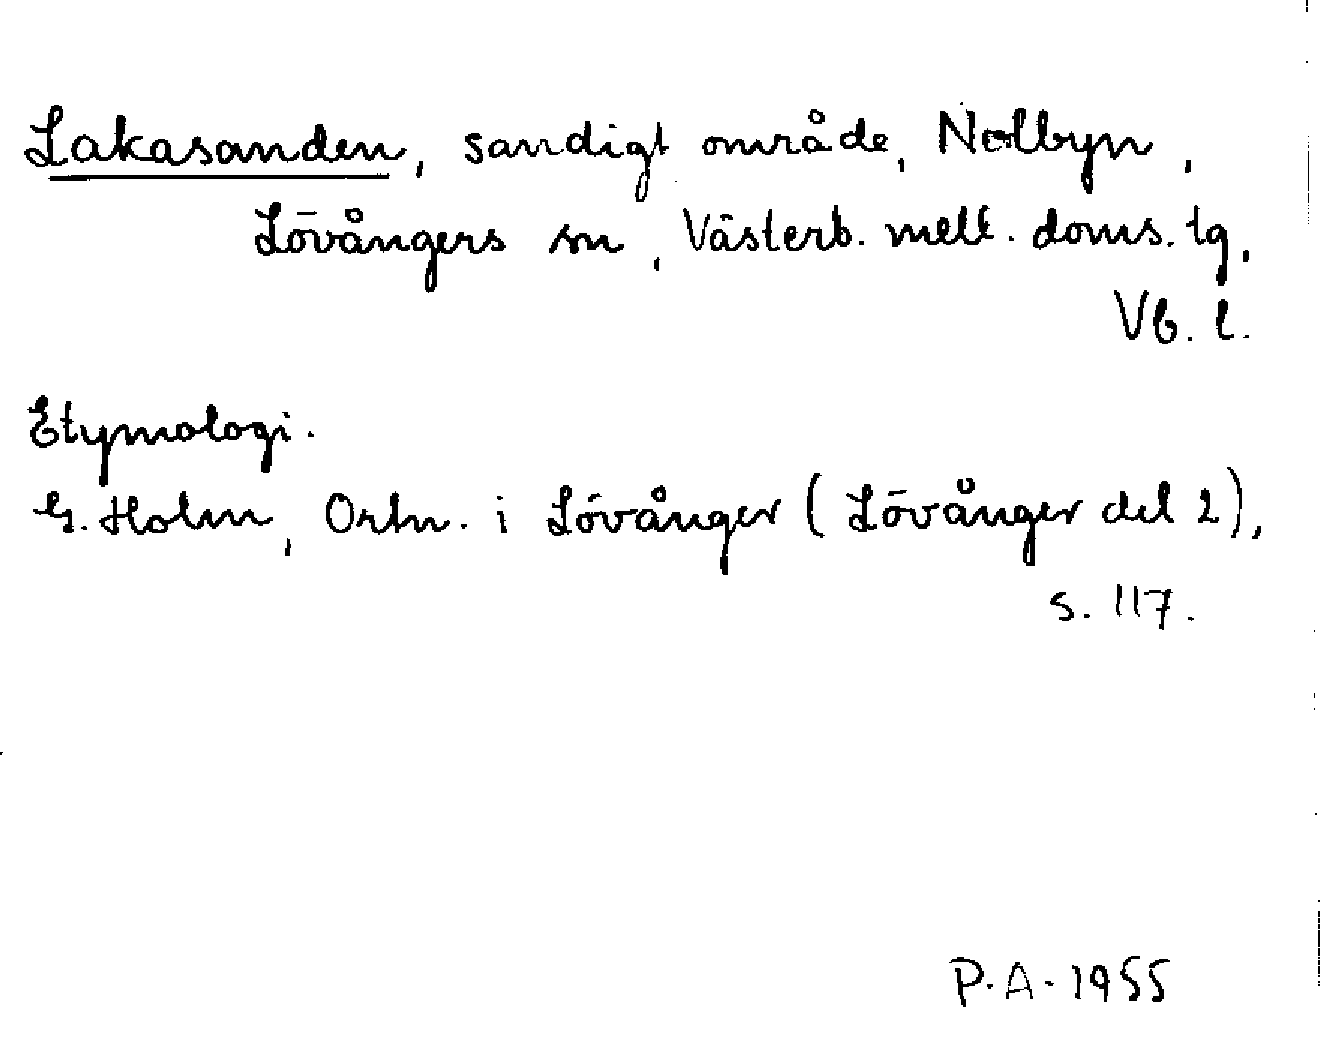 Lakasanden, sandigt område, Nolbyn,
Lövångers sn, Västerb. mell. doms. tg,
Vb. l.
Etymologi.
G. Holm, Ortn. i Lövånger (Lövånger del 2),
s. 117.
P.A. 1955